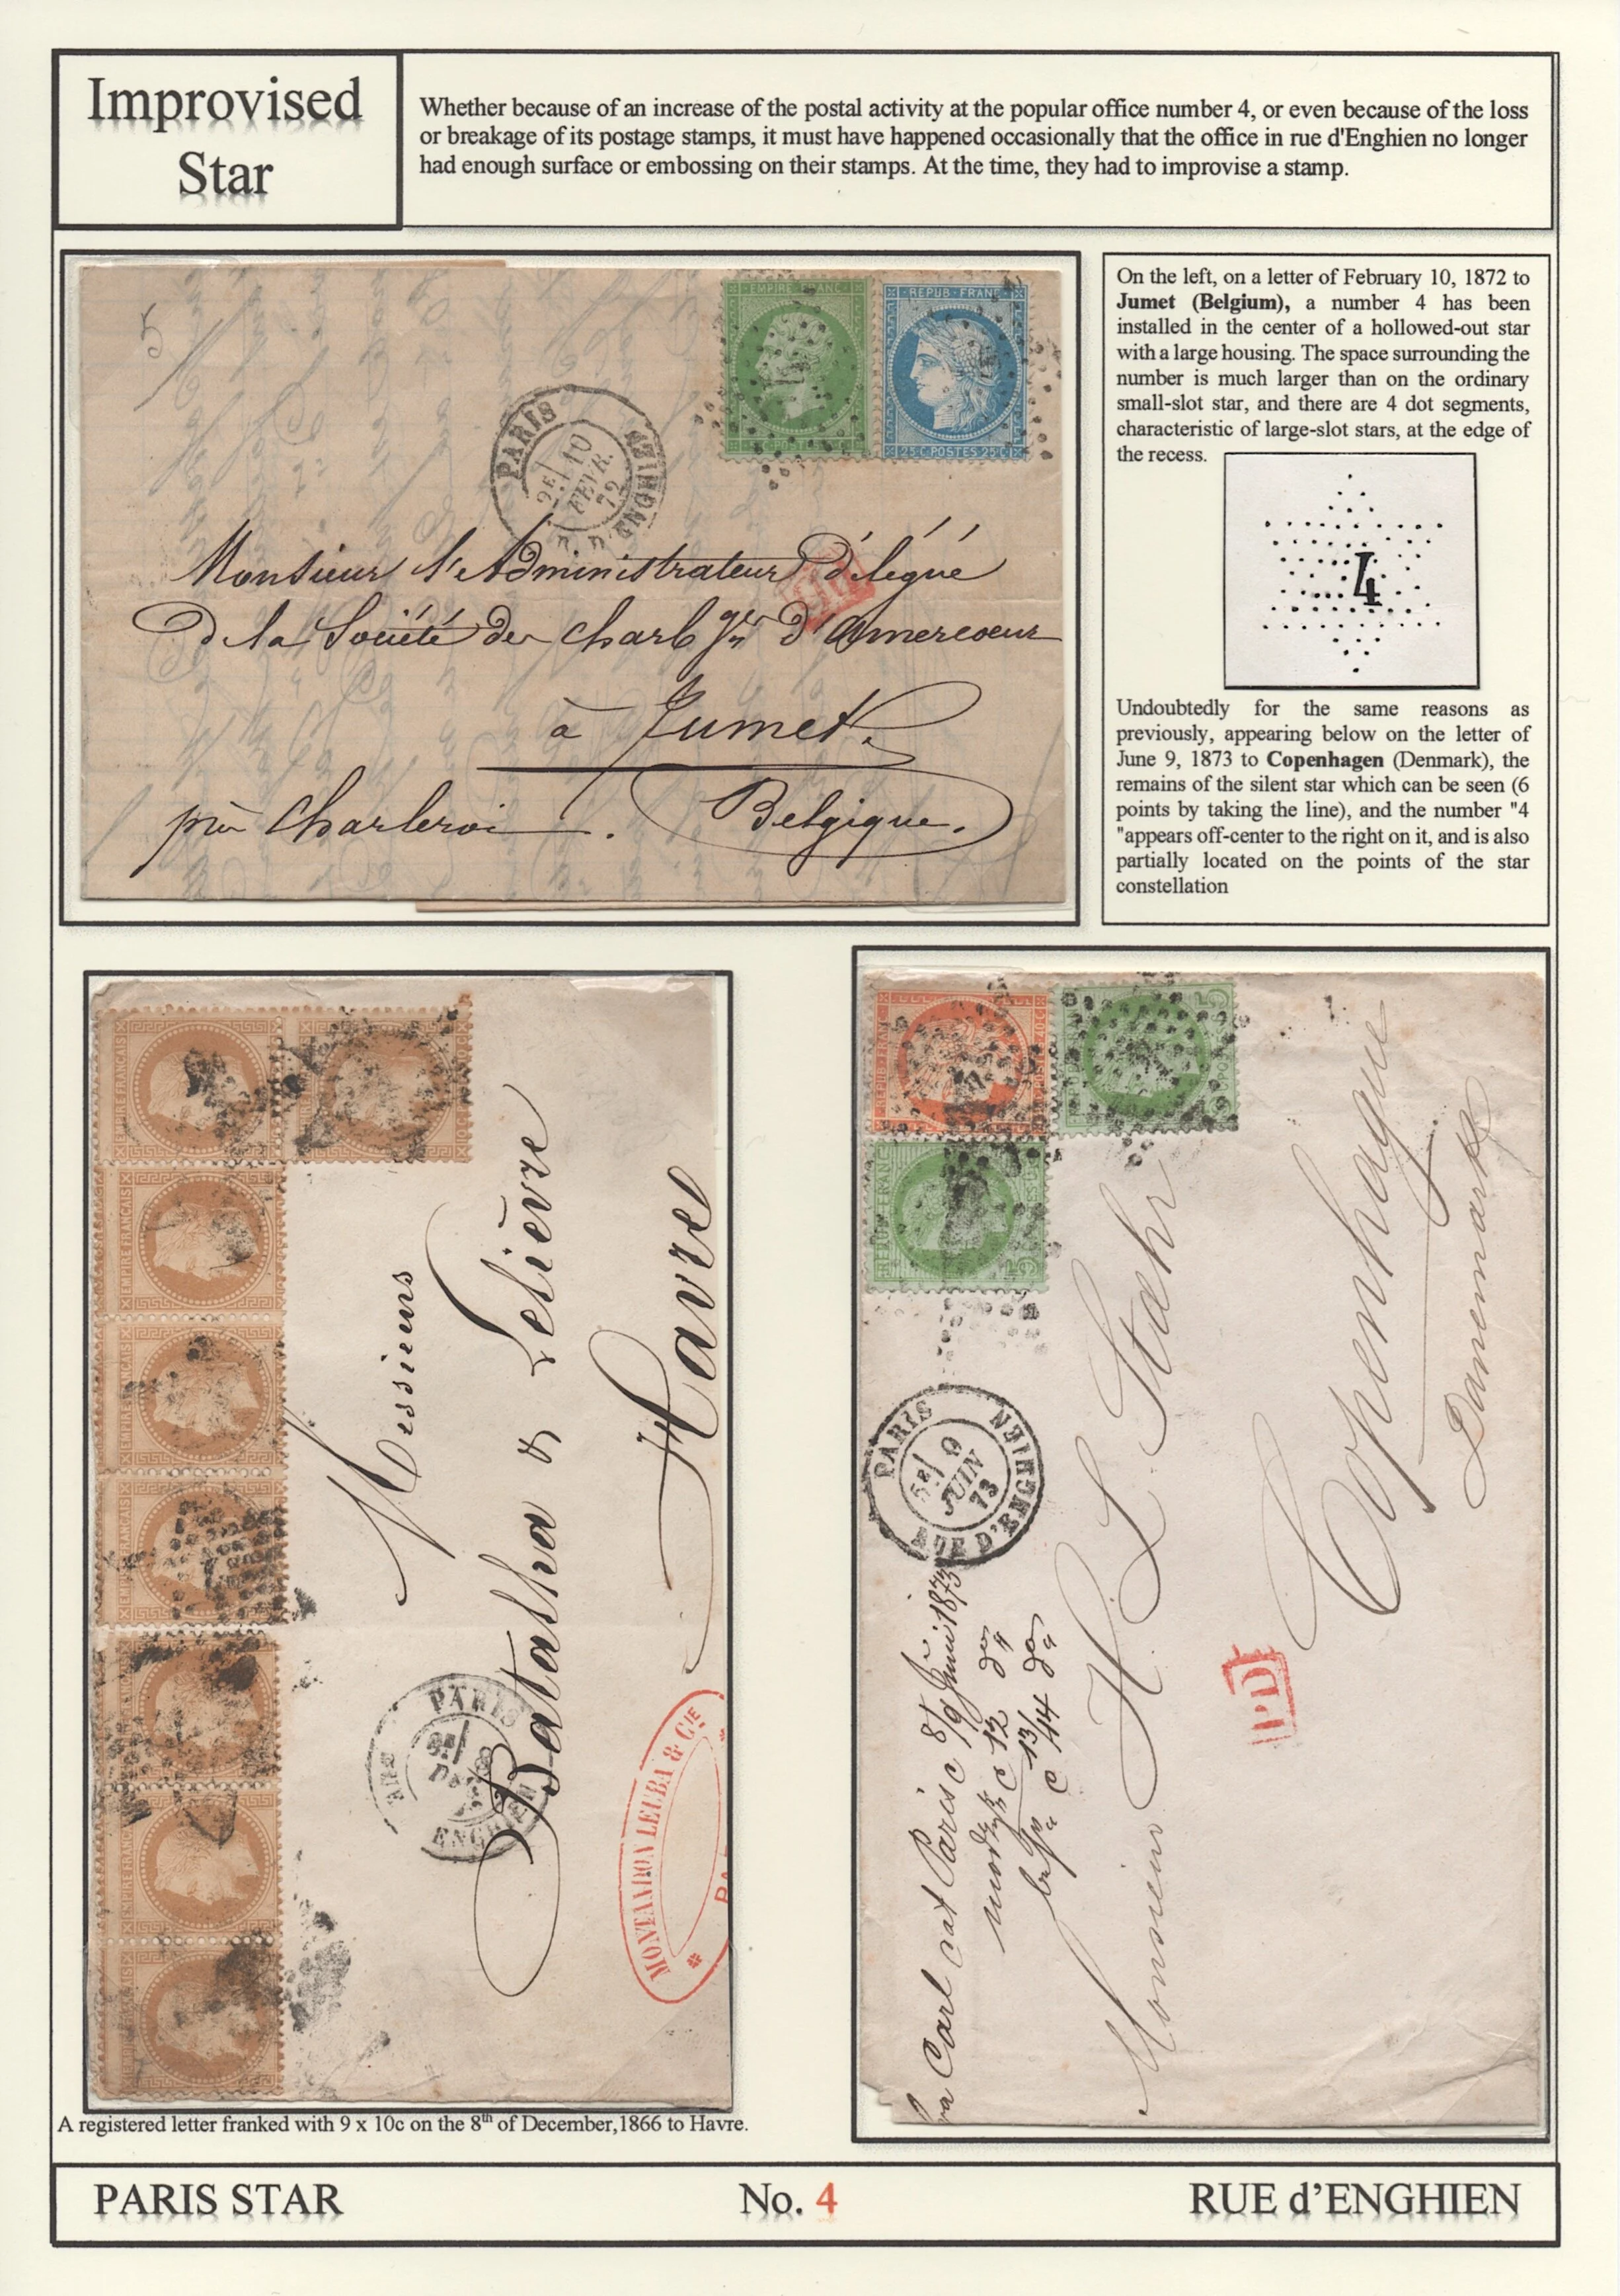 Improvised
Star
Whether because of an increase of the postal activity at the popular office number 4, or even because of the loss
or breakage of its postage stamps, it must have happened occasionally that the office in rue d'Enghien no longer
had enough surface or embossing on their stamps. At the time, they had to improvise a stamp.
EMPIRE FRANC
REPUB FRANC
25 C POSTES 25 C
5
PARIS
10
FEVR.
72
D'ENGHIEN
Monsieur l'Administrateur délégué
de la Société des Charb ges d'Amercoeur
à Jumet
par Charleroi. Belgique.
On the left, on a letter of February 10, 1872 to
Jumet (Belgium), a number 4 has been
installed in the center of a hollowed-out star
with a large housing. The space surrounding the
number is much larger than on the ordinary
small-slot star, and there are 4 dot segments,
characteristic of large-slot stars, at the edge of
the recess.
4
Undoubtedly for the same reasons as
previously, appearing below on the letter of
June 9, 1873 to Copenhagen (Denmark), the
remains of the silent star which can be seen (6
points by taking the line), and the number "4
"appears off-center to the right on it, and is also
partially located on the points of the star
constellation
EMPIRE FRANÇAIS
EMPIRE FRANÇAIS
EMPIRE FRANÇAIS
EMPIRE FRANÇAIS
EMPIRE FRANÇAIS
Messieurs
Batalha & Lelièvre
Havre
PARIS
RUE
ENGHIEN
MONTANDON LEUBA & CIE
REPUB FRANC
PARIS
5E
9
JUIN
73
RUE D'ENGHIEN
PD
Monsieur H. L. Stahr
Copenhague
Danemark
A registered letter franked with 9 x 10c on the 8th of December,1866 to Havre.
PARIS STAR
No. 4
RUE d'ENGHIEN